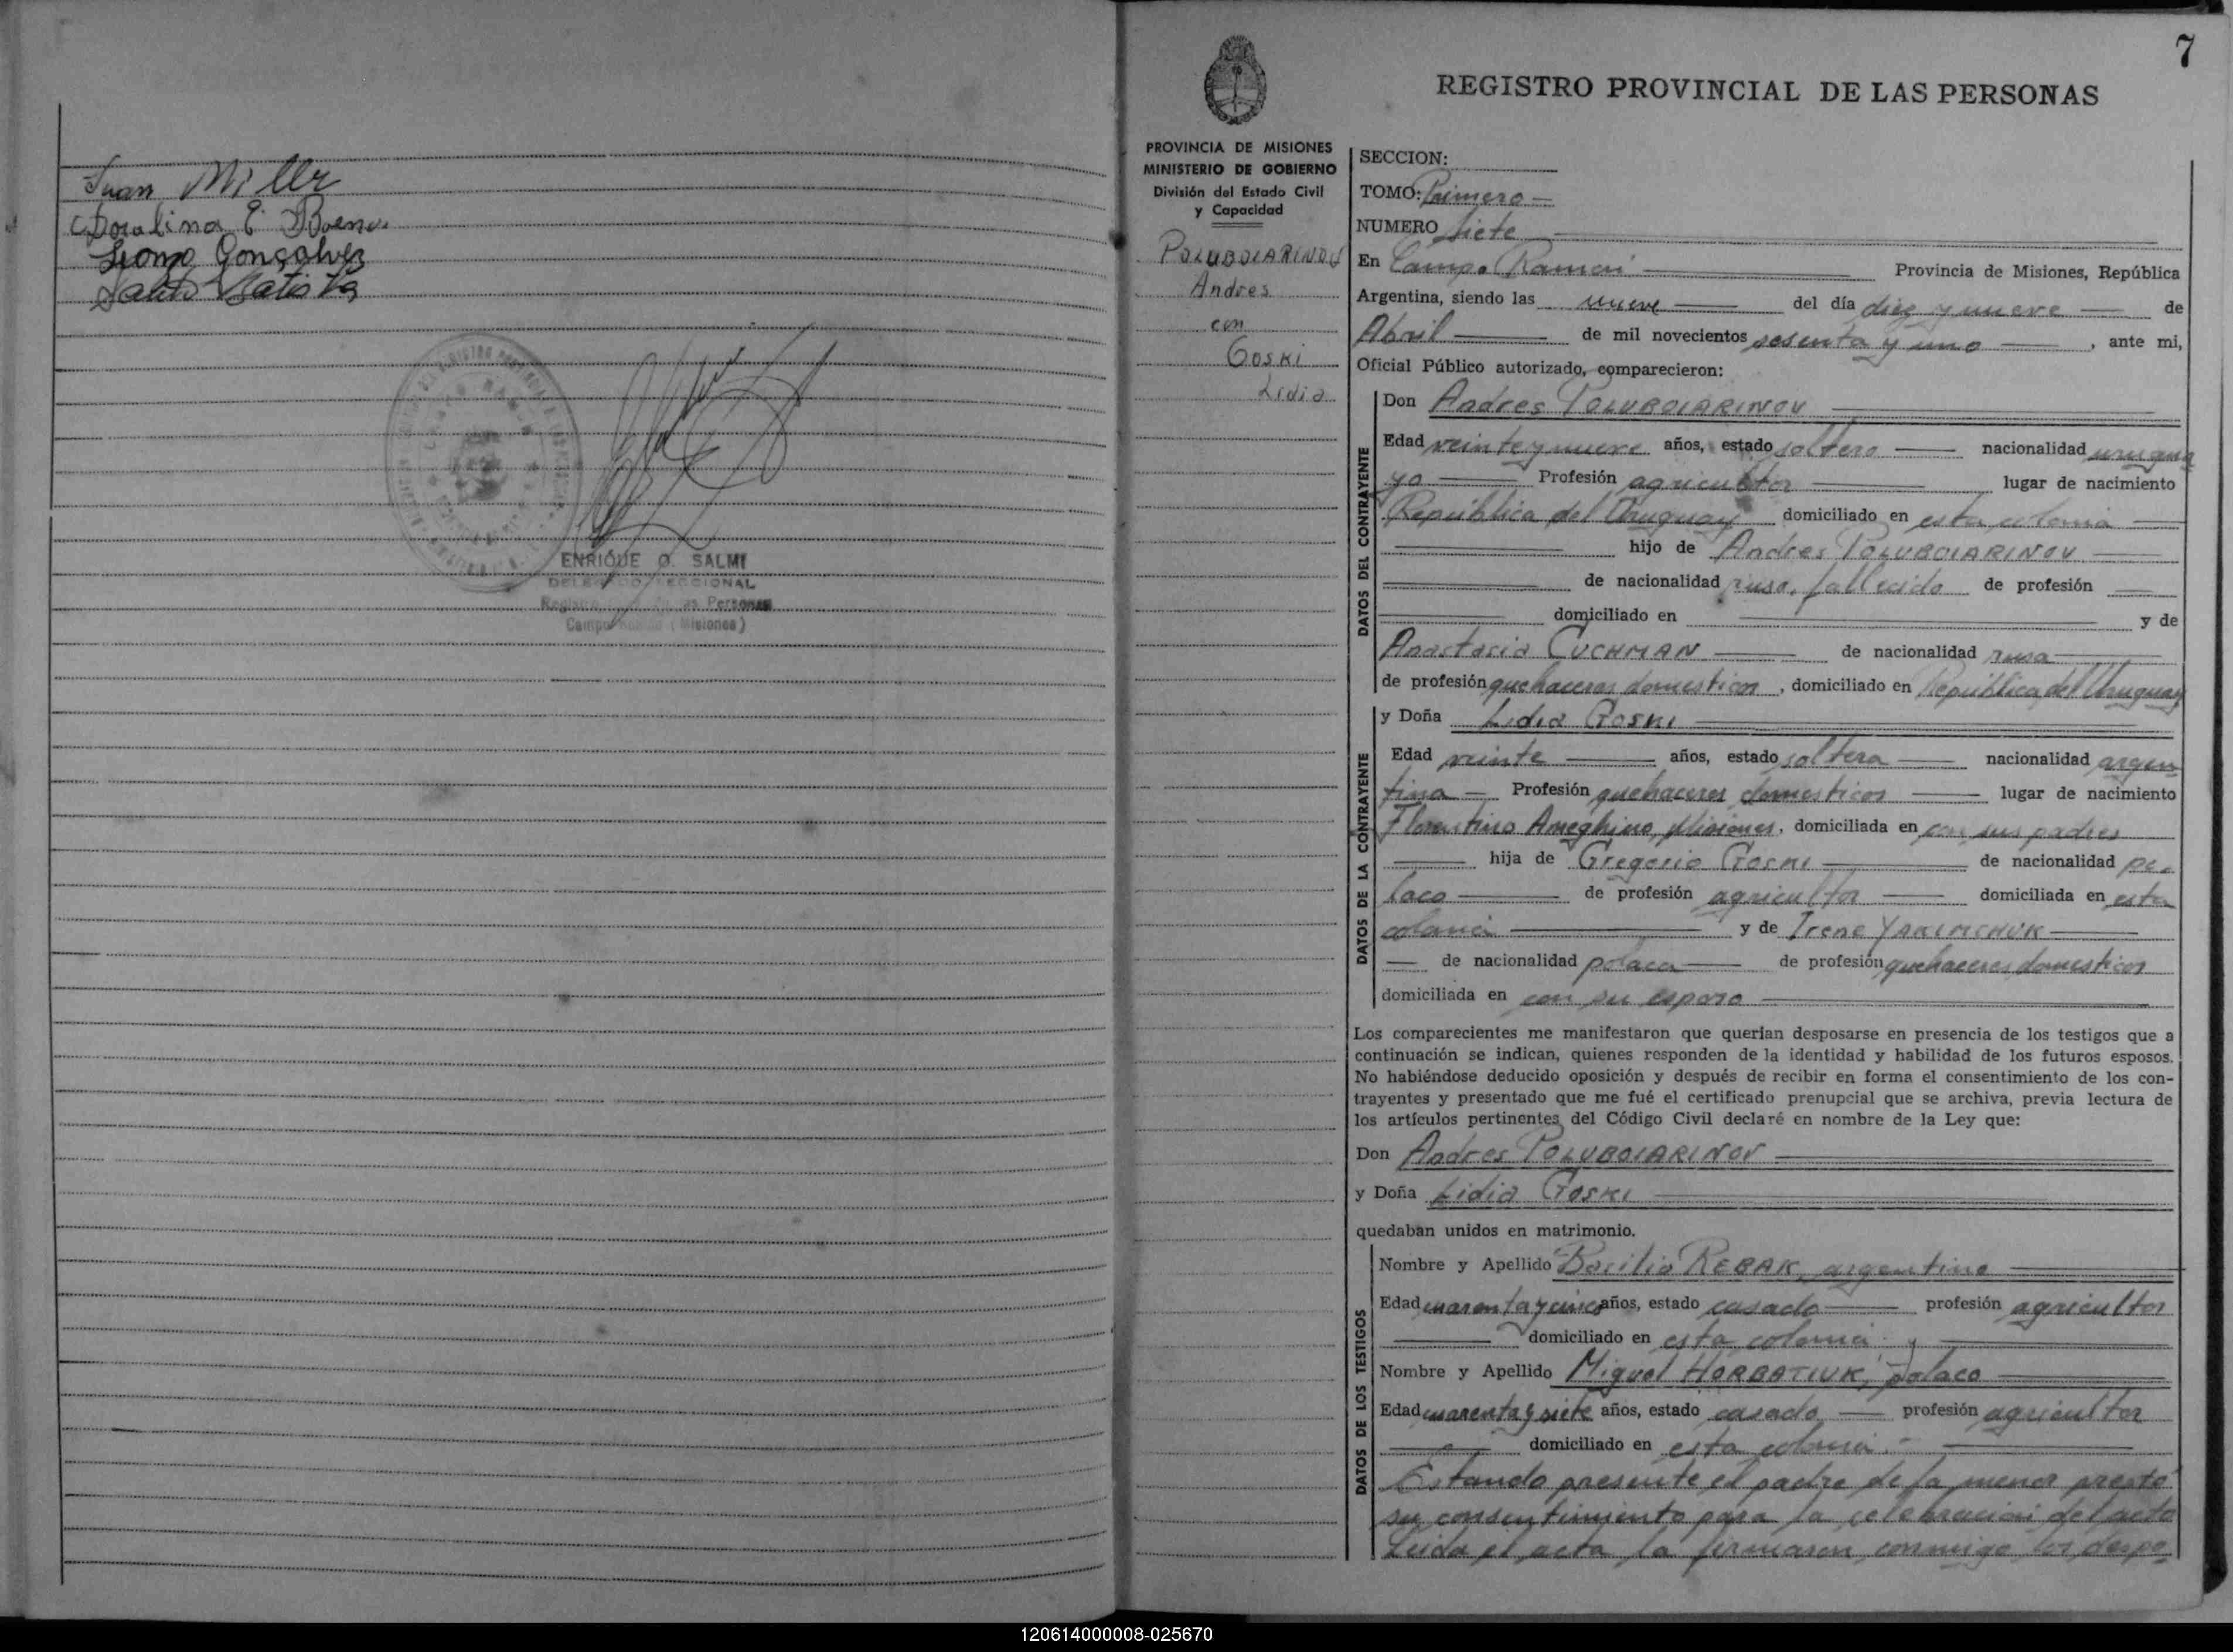 Juan Miller
Doralina E. Baeno
Gonçalvez
Batista
ENRIQUE O. SALMI
DELEGADO SECCIONAL
Registro de las Personas
Campo Ramón (Misiones)
7
REGISTRO PROVINCIAL DE LAS PERSONAS
PROVINCIA DE MISIONES
MINISTERIO DE GOBIERNO
División del Estado Civil
y Capacidad
POLUBOIARINOV
Andres
con
Goski
Lidia
SECCION:
TOMO: Primero
NUMERO siete
En Campo Ramón Provincia de Misiones, República
Argentina, siendo las nueve del día diez y nueve de
Abril de mil novecientos sesenta y uno, ante mi,
Oficial Público autorizado, comparecieron:
DATOS DEL CONTRAYENTE
Don Andres POLUBOIARINOV
Edad veinte y nueve años, estado soltero nacionalidad urugua
yo Profesión agricultor lugar de nacimiento
República del Uruguay domiciliado en esta colonia
hijo de Andres POLUBOIARINOV
de nacionalidad ruso, fallecido de profesión
domiciliado en y de
Anastasia CUCHMAN de nacionalidad rusa
de profesión quehaceres domesticos, domiciliado en República del Uruguay
DATOS DE LA CONTRAYENTE
y Doña Lidia GOSKI
Edad veinte años, estado soltera nacionalidad argen
tina Profesión quehaceres domesticos lugar de nacimiento
Florentino Ameghino, Misiones, domiciliada en con sus padres
hija de Gregorio GOSKI de nacionalidad po-
laco de profesión agricultor domiciliada en esta
colonia y de Irene YAKIMCHUK
de nacionalidad polaca de profesión quehaceres domesticos
domiciliada en con su esposo
Los comparecientes me manifestaron que querían desposarse en presencia de los testigos que a
continuación se indican, quienes responden de la identidad y habilidad de los futuros esposos.
No habiéndose deducido oposición y después de recibir en forma el consentimiento de los con-
trayentes y presentado que me fué el certificado prenupcial que se archiva, previa lectura de
los artículos pertinentes del Código Civil declaré en nombre de la Ley que:
Don Andres POLUBOIARINOV
y Doña Lidia GOSKI
quedaban unidos en matrimonio.
DATOS DE LOS TESTIGOS
Nombre y Apellido Basilio REBAK, argentino
Edad cuarenta y cinco años, estado casado profesión agricultor
domiciliado en esta colonia y
Nombre y Apellido Miguel HORBATIUK, polaco
Edad cuarenta y siete años, estado casado profesión agricultor
domiciliado en esta colonia.-
Estando presente el padre de la menor prestó
su consentimiento para la celebración del acto
Leída el acta la firmaron conmigo los despo-
120614000008-025670